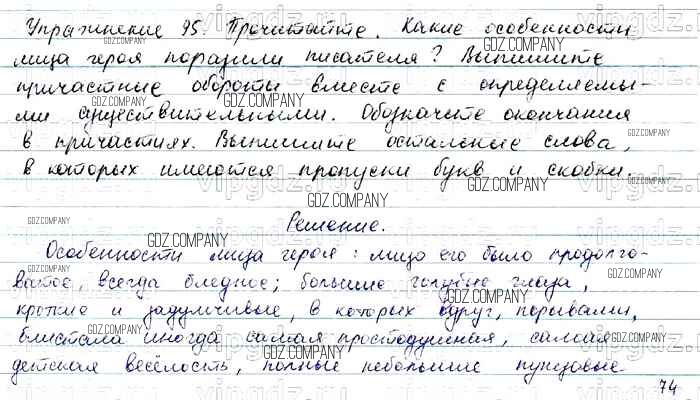 Упражнение 95. Прочитайте. Какие особенности
лица героя поразили писателя? Выпишите
причастные обороты вместе с определяемы-
ми существительными. Обозначьте окончания
в причастиях. Выпишите остальные слова,
в которых имеются пропуски букв и скобки.
Решение.
Особенности лица героя: лицо его было продолго-
ватое, всегда бледное; большие голубые глаза,
кроткие и задумчивые, в которых вдруг, порывами,
блистала иногда самая простодушная, самая
детская весёлость, полные небольшие пунцовые
74